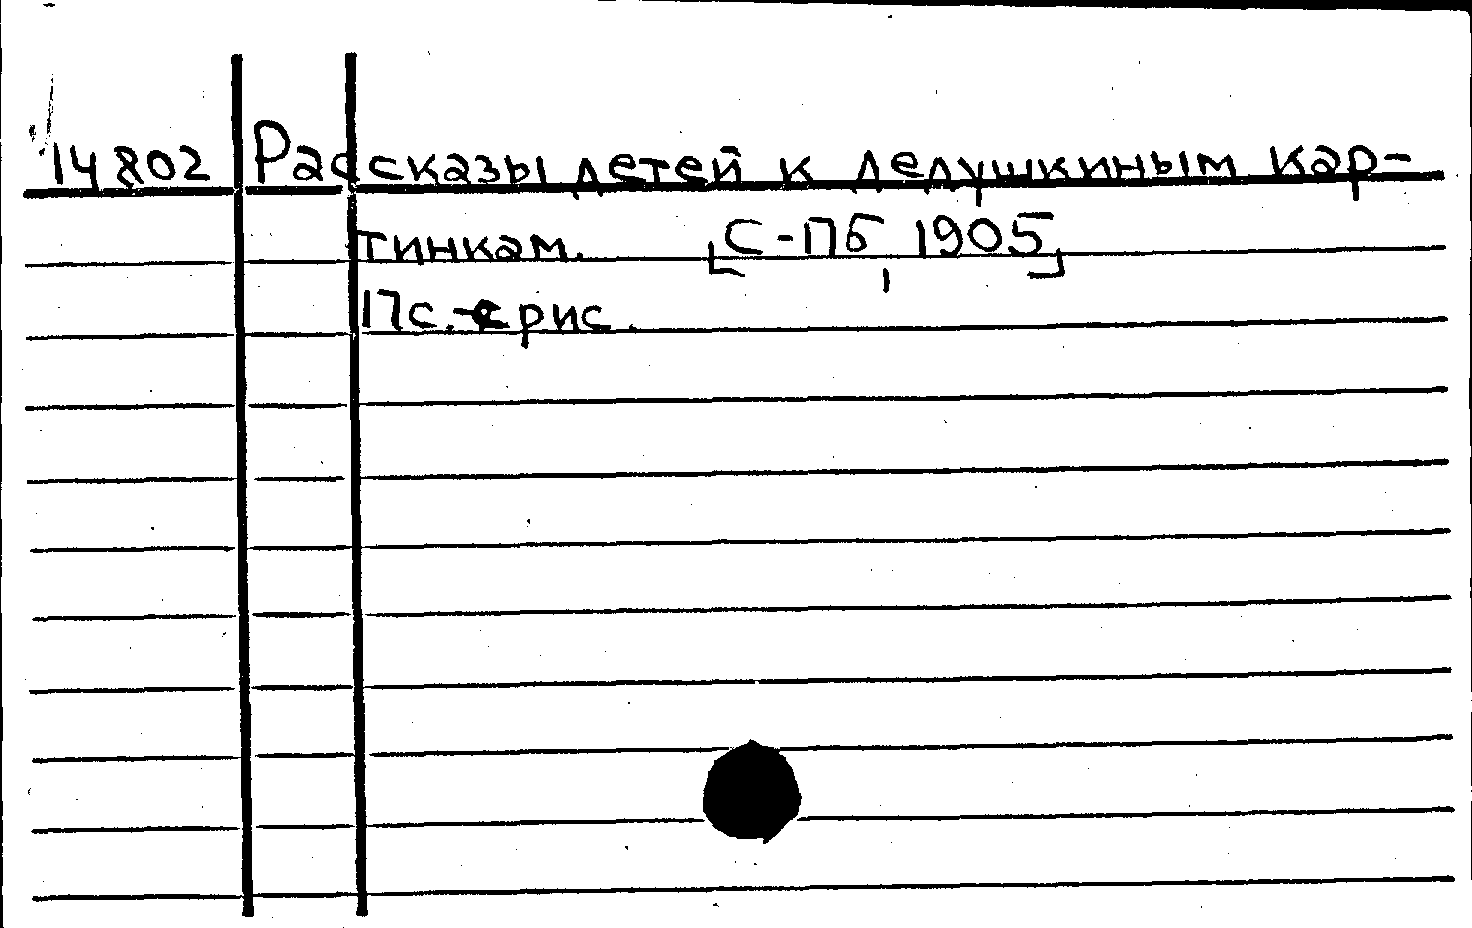 14802 Рассказы детей к дедушкиным кар-
тинкам. [С-Пб, 1905]
17с. с рис.